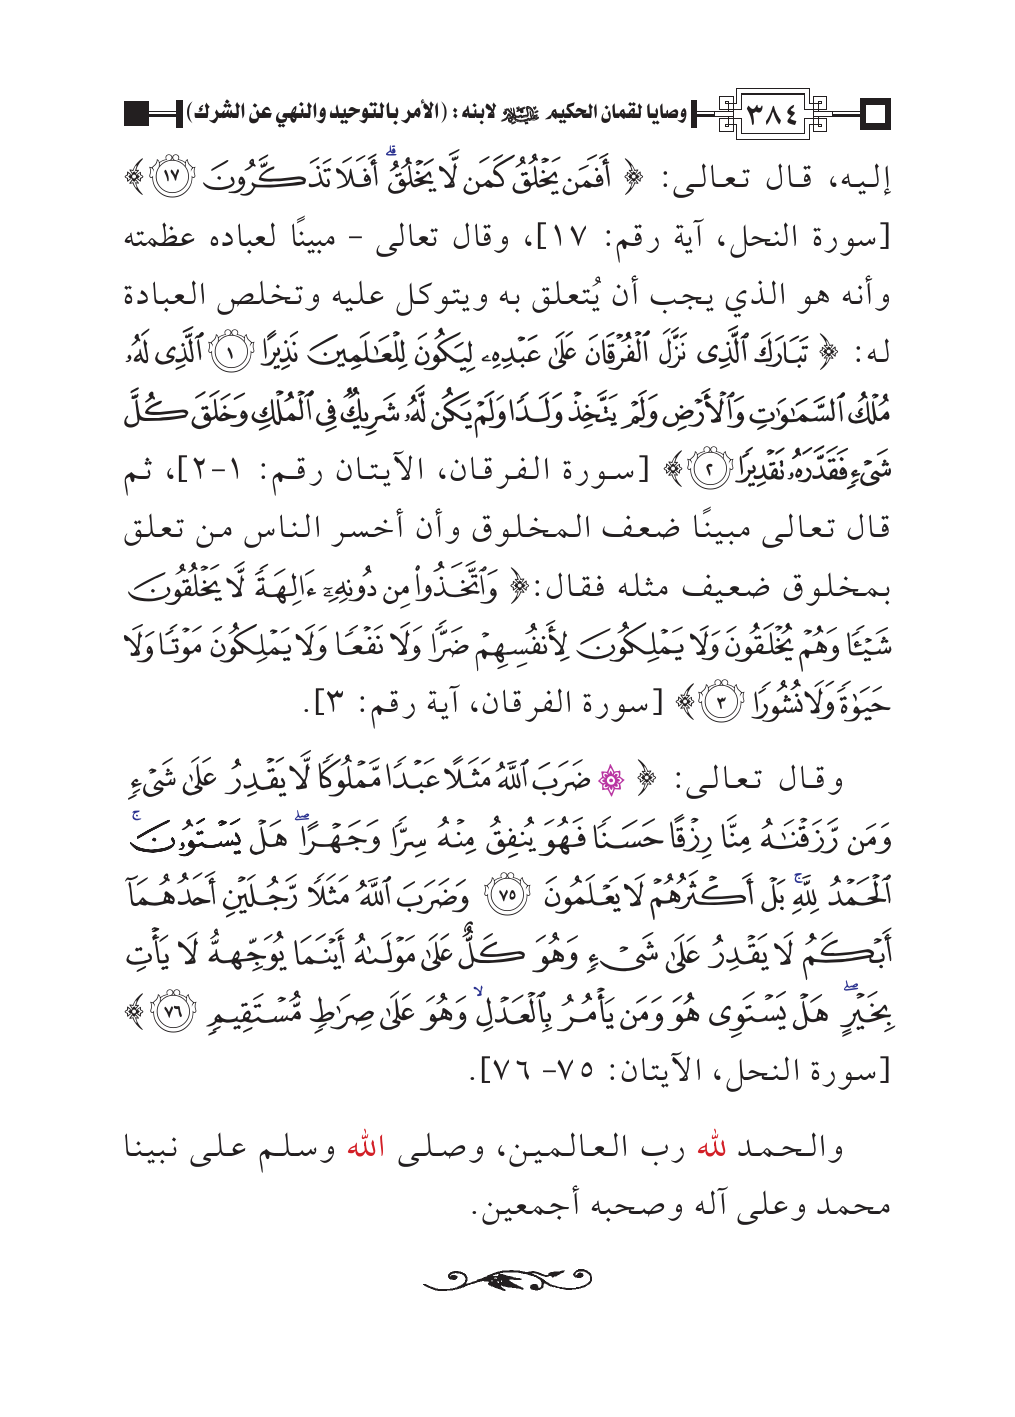 ٣٨٤ وصايا لقمان الحكيم لابنه: (الأمر بالتوحيد والنهي عن الشرك)
إليه، قال تعالى: ﴿ أَفَمَن يَخْلُقُ كَمَن لَّا يَخْلُقُ ۗ أَفَلَا تَذَكَّرُونَ ١٧ ﴾
[سورة النحل، آية رقم: ١٧]، وقال تعالى - مبينًا لعباده عظمته
وأنه هو الذي يجب أن يُتعلق به ويتوكل عليه وتخلص العبادة
له: ﴿ تَبَارَكَ ٱلَّذِى نَزَّلَ ٱلْفُرْقَانَ عَلَىٰ عَبْدِهِۦ لِيَكُونَ لِلْعَـٰلَمِينَ نَذِيرًا ١ ٱلَّذِى لَهُۥ
مُلْكُ ٱلسَّمَـٰوَٰتِ وَٱلْأَرْضِ وَلَمْ يَتَّخِذْ وَلَدًا وَلَمْ يَكُن لَّهُۥ شَرِيكٌ فِى ٱلْمُلْكِ وَخَلَقَ كُلَّ
شَىْءٍ فَقَدَّرَهُۥ تَقْدِيرًا ٢ ﴾ [سورة الفرقان، الآيتان رقم: ١-٢]، ثم
قال تعالى مبينًا ضعف المخلوق وأن أخسر الناس من تعلق
بمخلوق ضعيف مثله فقال:﴿ وَٱتَّخَذُوا۟ مِن دُونِهِۦٓ ءَالِهَةً لَّا يَخْلُقُونَ
شَيْـًٔا وَهُمْ يُخْلَقُونَ وَلَا يَمْلِكُونَ لِأَنفُسِهِمْ ضَرًّا وَلَا نَفْعًا وَلَا يَمْلِكُونَ مَوْتًا وَلَا
حَيَوٰةً وَلَا نُشُورًا ٣ ﴾ [سورة الفرقان، آية رقم: ٣].
وقال تعالى: ﴿ ۞ ضَرَبَ ٱللَّهُ مَثَلًا عَبْدًا مَّمْلُوكًا لَّا يَقْدِرُ عَلَىٰ شَىْءٍ
وَمَن رَّزَقْنَـٰهُ مِنَّا رِزْقًا حَسَنًا فَهُوَ يُنفِقُ مِنْهُ سِرًّا وَجَهْرًا ۖ هَلْ يَسْتَوُۥنَ ۚ
ٱلْحَمْدُ لِلَّهِ ۚ بَلْ أَكْثَرُهُمْ لَا يَعْلَمُونَ ٧٥ وَضَرَبَ ٱللَّهُ مَثَلًا رَّجُلَيْنِ أَحَدُهُمَآ
أَبْكَمُ لَا يَقْدِرُ عَلَىٰ شَىْءٍ وَهُوَ كَلٌّ عَلَىٰ مَوْلَىٰهُ أَيْنَمَا يُوَجِّههُّ لَا يَأْتِ
بِخَيْرٍ ۖ هَلْ يَسْتَوِى هُوَ وَمَن يَأْمُرُ بِٱلْعَدْلِ ۙ وَهُوَ عَلَىٰ صِرَٰطٍ مُّسْتَقِيمٍ ٧٦ ﴾
[سورة النحل، الآيتان: ٧٥- ٧٦].
والحمد لله رب العالمين، وصلى الله وسلم على نبينا
محمد وعلى آله وصحبه أجمعين.